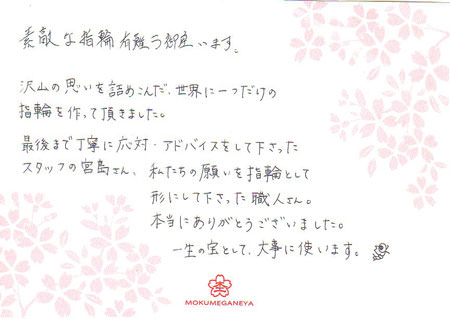 素敵な指輪有難う御座います。
沢山の思いを詰めこんだ、世界に一つだけの
指輪を作って頂きました。
最後まで丁寧に応対・アドバイスをして下さった
スタッフの宮島さん、私たちの願いを指輪として
形にして下さった職人さん。
本当にありがとうございました。
一生の宝として、大事に使います。
MOKUMEGANEYA